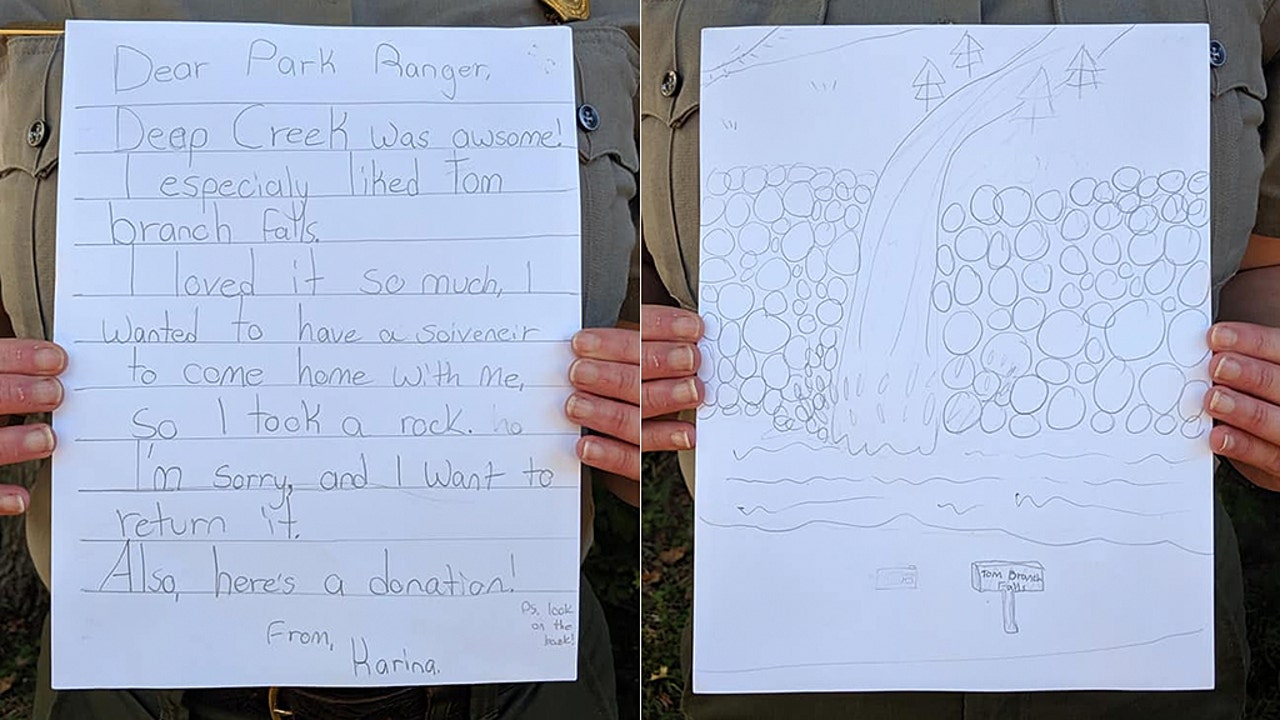 Dear Park Ranger,
Deap Creek was awsome!
I especialy liked Tom
branch falls.
I loved it so much, I
wanted to have a soiveneir
to come home with me,
so I took a rock.
I'm sorry, and I want to
return it.
Also, here's a donation!
From,
Karina.
Ps, look
on the
back!
Tom Branch
Falls